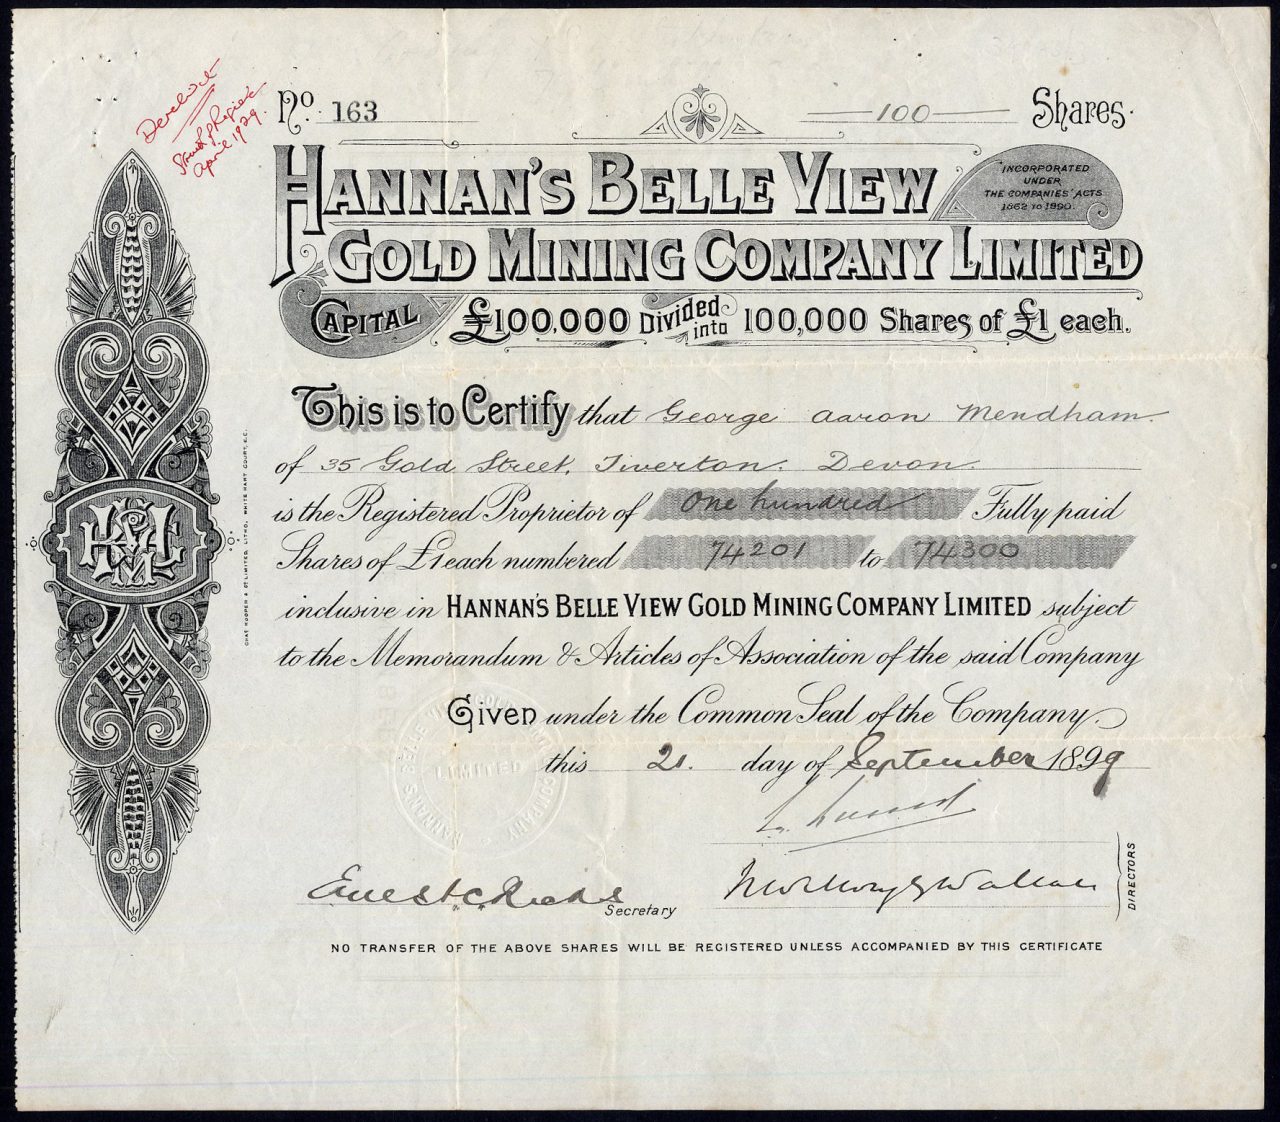 Struck off Register
April 1929.
No. 163
100 Shares.
HANNAN'S BELLE VIEW
INCORPORATED
UNDER
THE COMPANIES' ACTS
1862 TO 1890.
GOLD MINING COMPANY LIMITED
CAPITAL £100,000 Divided into 100,000 Shares of £1 each.
This is to Certify that George Aaron Mendham
of 35 Gold Street, Tiverton. Devon.
is the Registered Proprietor of One hundred Fully paid
Shares of £1 each numbered 74201 to 74300
inclusive in HANNAN'S BELLE VIEW GOLD MINING COMPANY LIMITED subject
to the Memorandum & Articles of Association of the said Company
Given under the Common Seal of the Company.
this 21. day of September 1899
HANNAN'S BELLE VIEW GOLD MINING COMPANY
LIMITED
Secretary
DIRECTORS
NO TRANSFER OF THE ABOVE SHARES WILL BE REGISTERED UNLESS ACCOMPANIED BY THIS CERTIFICATE
CHAS HOOPER & CO LIMITED, LITHO, WHITE HART COURT, E.C.